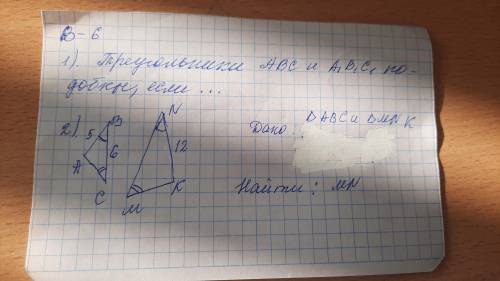 В-6
1). Треугольники ABC и A₁B₁C₁ по-
добны, если ...
2).
B
5
6
A
C
N
12
M
K
Дано: ΔABC и ΔMNK
Найти: MN